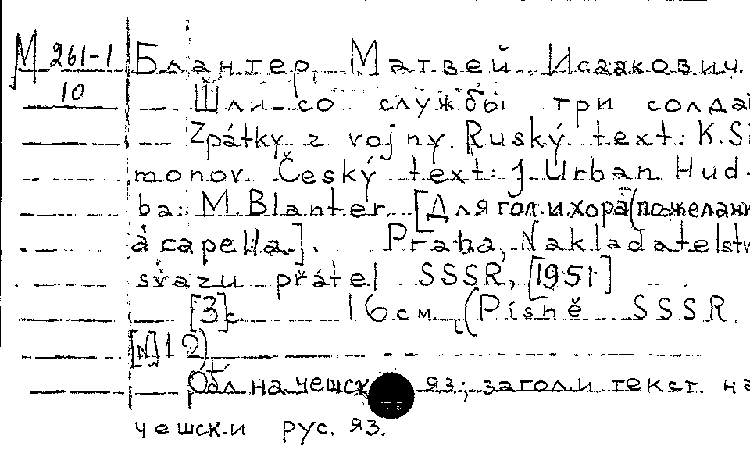 М 261-1 Блантер, Матвей Исаакович.
10 Шли со службы три солда
Zpátky z vojny. Ruský text: K. Si
monov. Český text: J. Urban. Hud-
ba: M. Blanter. [Для гол. и хора (по желан
à capella]. Praha, Nakladatelstv
svazu přátel SSSR, [1951]
[3] с. 16 см. (Písně SSSR.
[N] 12)
Обл. на чешск яз; загол. и текст на
чешск. и рус. яз.